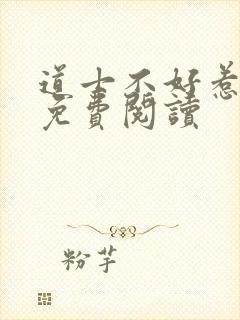 道士不好惹
免費閱讀
粉芋